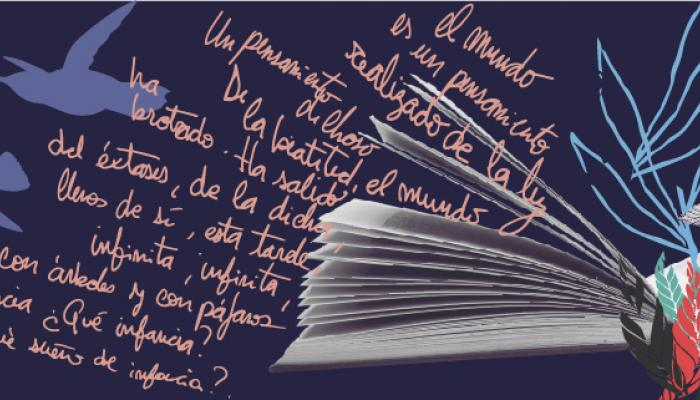 el mundo
es un pensamiento
realizado de la luz
Un pensamiento
dichoso
De la beatitud, el mundo
ha
brotado. Ha salido
del éxtases, de la dicha,
llenos de sí, esta tarde
infinita, infinita,
con árboles y con pájaros
¿Qué infancia?
sueño de infancia?